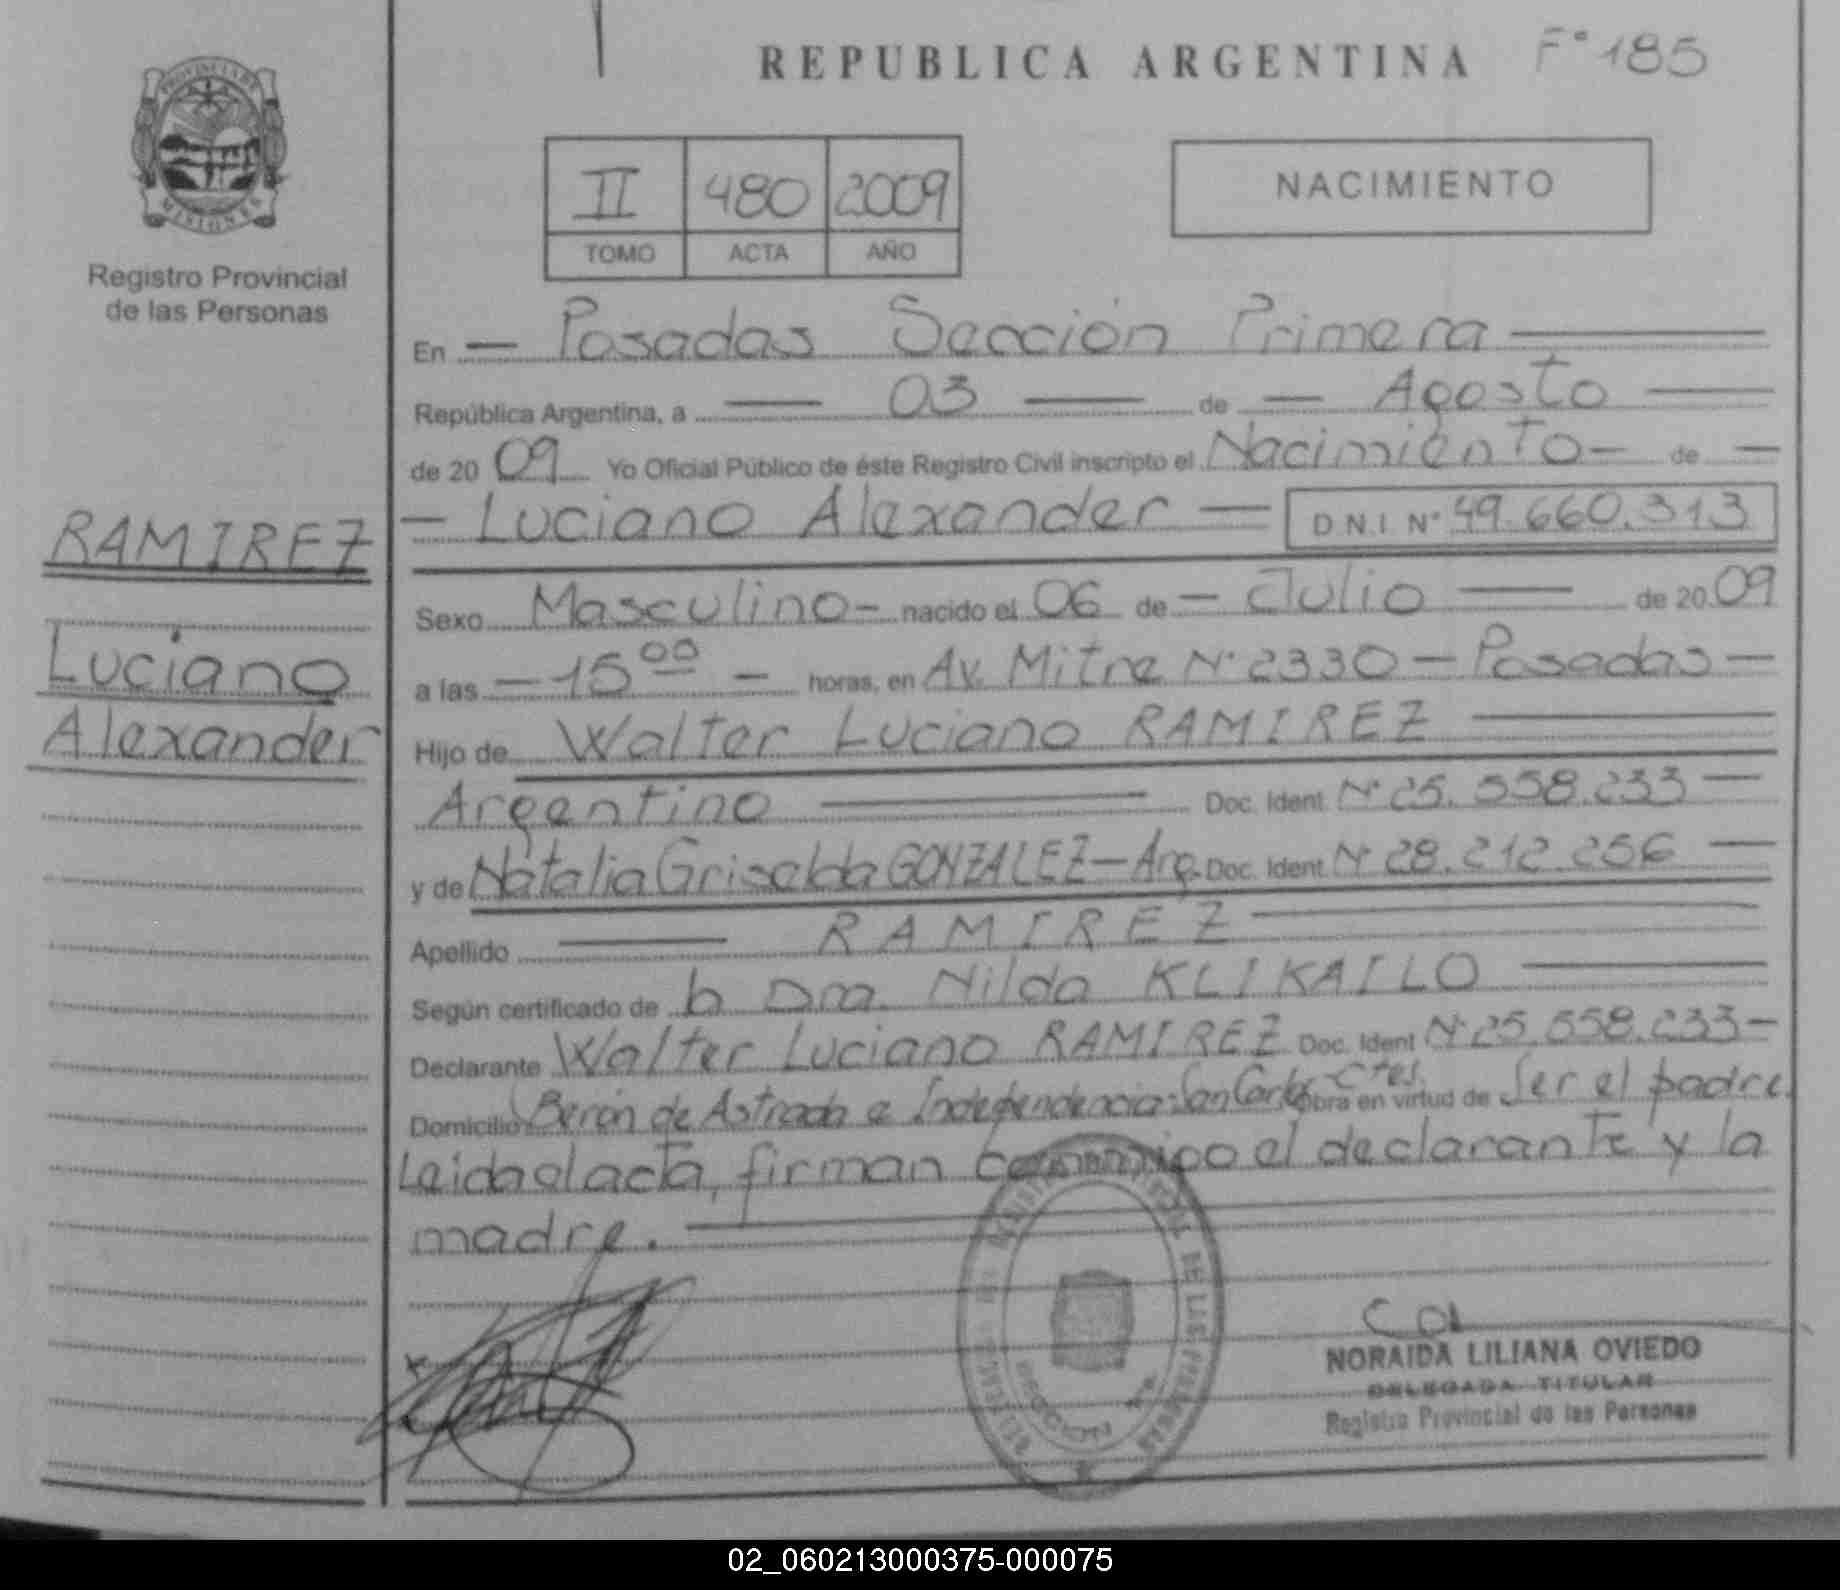 REPUBLICA ARGENTINA F° 185
PROVINCIA DE
MISIONES
Registro Provincial
de las Personas
II 480 2009
TOMO ACTA AÑO
NACIMIENTO
En — Posadas Sección Primera —
República Argentina, a — 03 — de — Agosto —
de 20 09 Yo Oficial Público de éste Registro Civil inscripto el Nacimiento — de —
— Luciano Alexander — D.N.I. N° 49.660.313
RAMIREZ
Luciano
Alexander
Sexo Masculino - nacido el 06 de — Julio — de 20 09
a las — 15 00 — horas, en Av. Mitre N° 2330 — Posadas —
Hijo de Walter Luciano RAMIREZ —
Argentino — Doc. Ident. N° 25.558.233 —
y de Natalia Griselda GONZALEZ — Arg. Doc. Ident. N° 28.212.256 —
Apellido — RAMIREZ —
Según certificado de la Dra. Nilda KLIKAILO —
Declarante Walter Luciano RAMIREZ Doc. Ident N° 25.558.233 —
Domicilio Berón de Astrada e Independencia - San Carlos - Ctes. Obra en virtud de Ser el padre.
Leida el acta, firman conmigo el declarante y la
madre. —
SECCION
DE LAS PERSONAS
NORAIDA LILIANA OVIEDO
DELEGADA TITULAR
Registro Provincial de las Personas
02_060213000375-000075